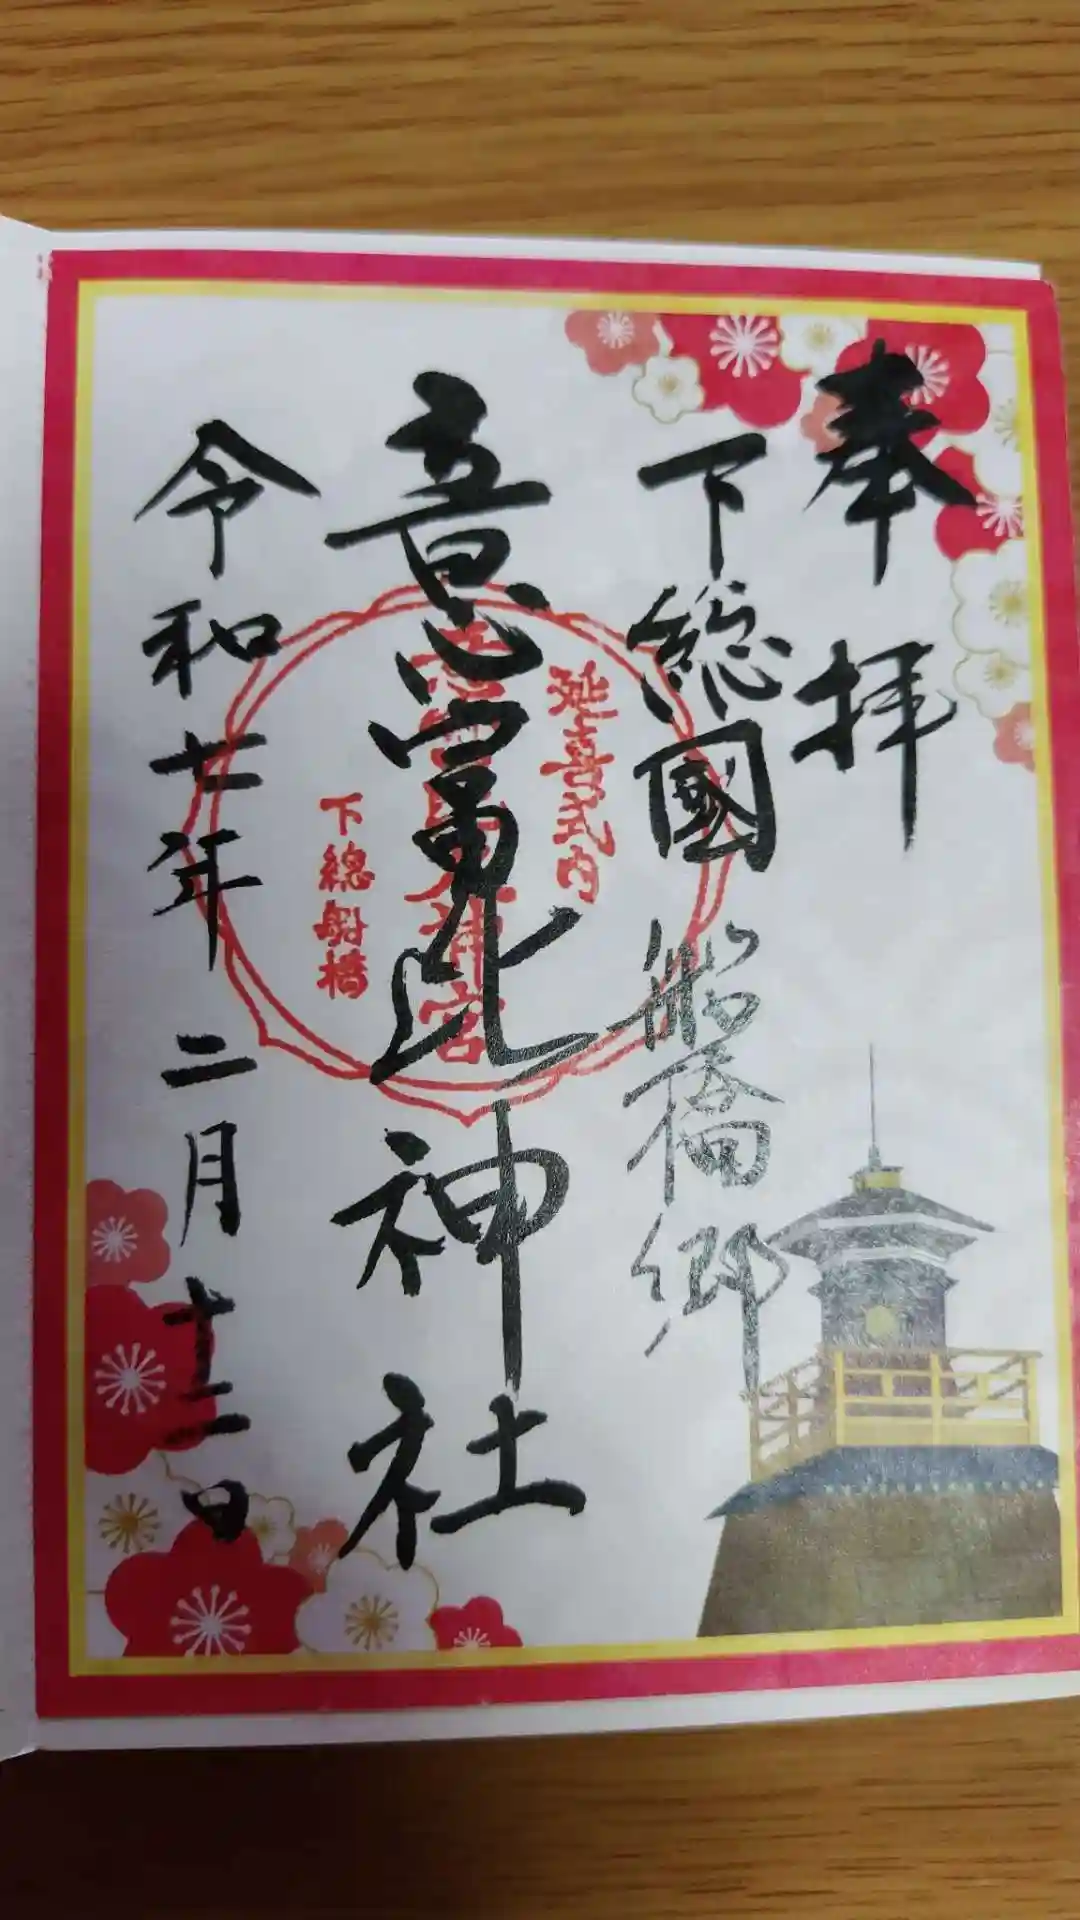 奉拝
下総國 船橋郷
意富比神社
令和七年 二月十二日
延喜式内
下總船橋